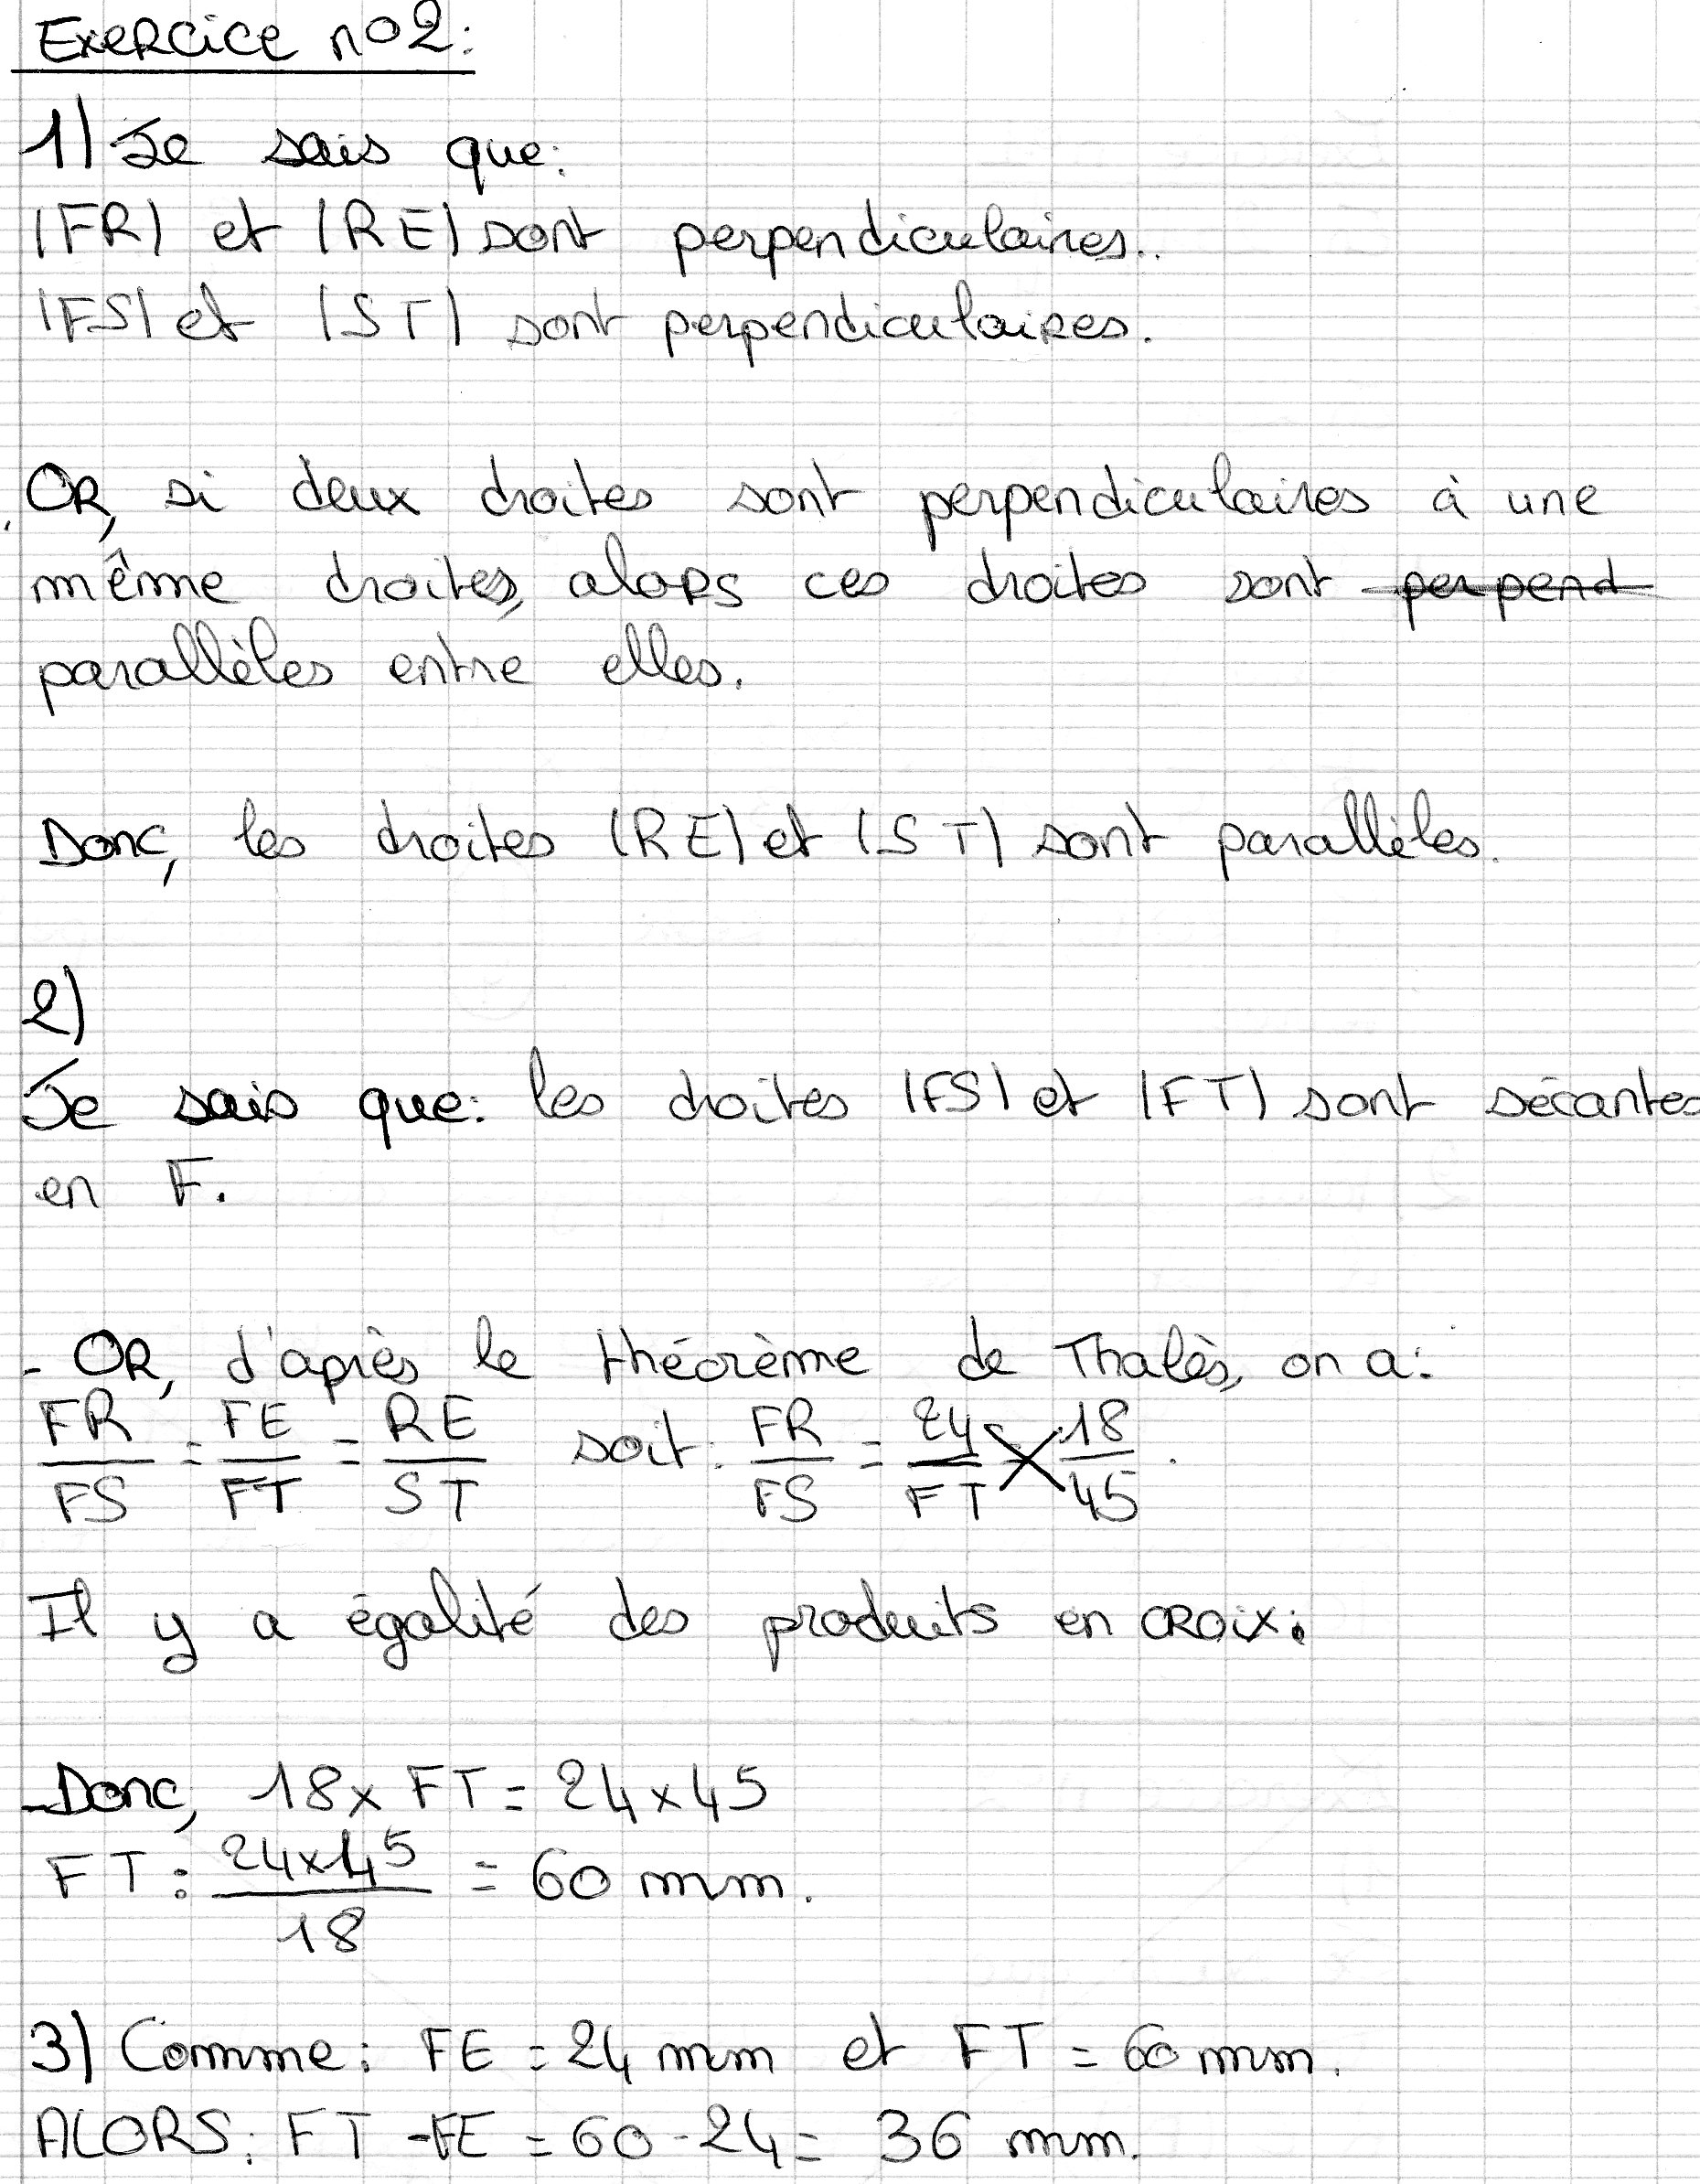 Exercice n°2:
1) Je sais que:
(FR) et (RE) sont perpendiculaires..
(FS) et (ST) sont perpendiculaires.
OR, si deux droites sont perpendiculaires à une
même droites, alors ces droites sont perpend
parallèles entre elles.
Donc, les droites (RE) et (ST) sont parallèles.
2)
Je sais que: les droites (FS) et (FT) sont sécantes
en F.
- OR, d'après le théorème de Thalès, on a:
FR/FS = FE/FT = RE/ST soit: FR/FS = 24/FT = 18/45.
Il y a égalité des produits en croix:
- Donc, 18 x FT = 24 x 45
FT : 24x45/18 = 60 mm.
3) Comme: FE = 24 mm et FT = 60 mm.
ALORS: FT - FE = 60 - 24 = 36 mm.